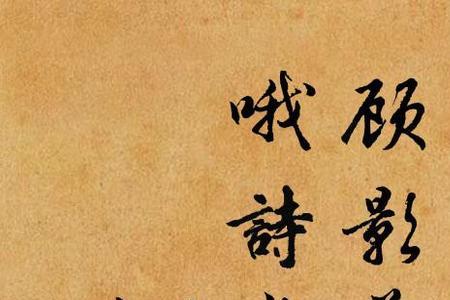 顾影
哦詩